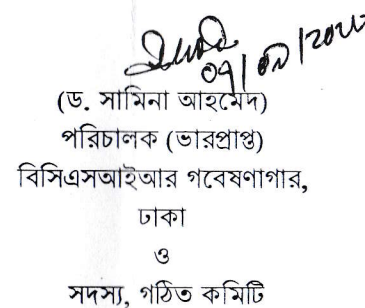 (ড. সামিনা আহমেদ)
পরিচালক (ভারপ্রাপ্ত)
বিসিএসআইআর গবেষণাগার,
ঢাকা
ও
সদস্য, গঠিত কমিটি